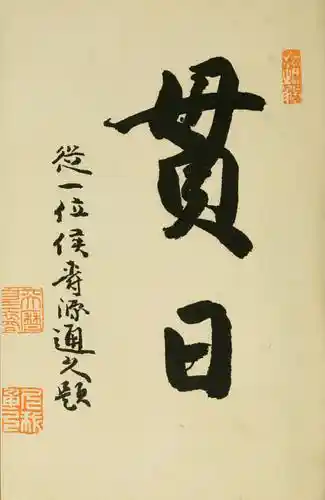 貫日
從一位侯爵源通久題